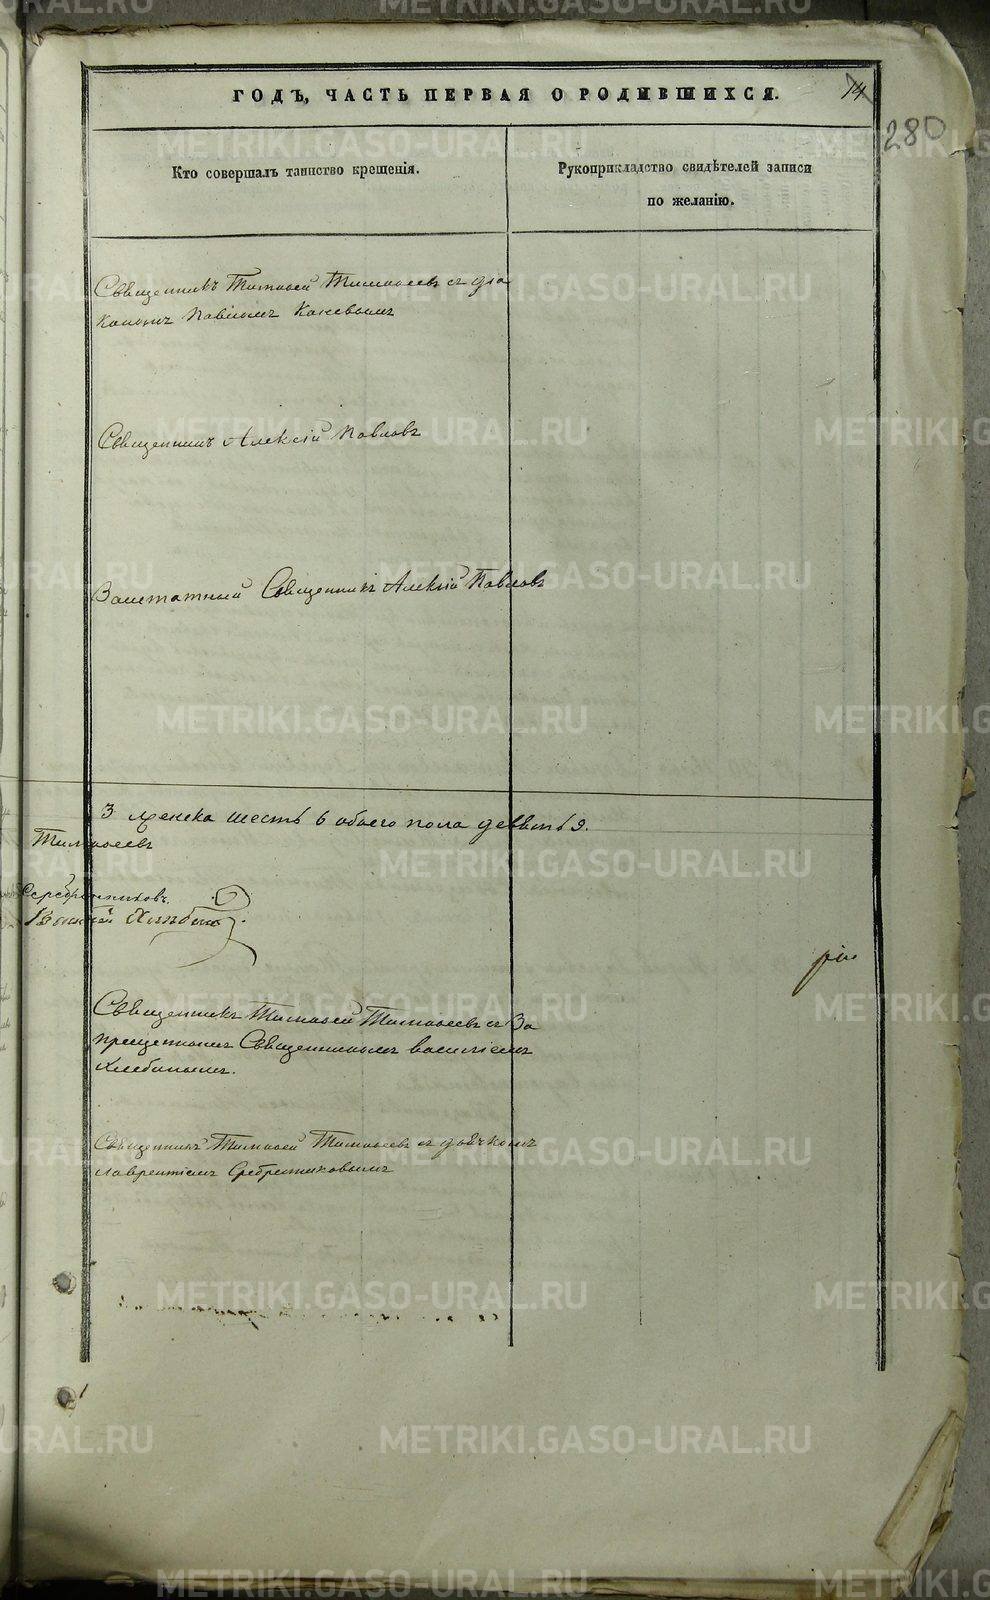 ГОДЪ, ЧАСТЬ ПЕРВАЯ О РОДИВШИХСЯ.
14
280
Кто совершалъ таинство крещенія.
Рукоприкладство свидѣтелей записи
по желанію.
Священникъ Тимофей Тимофеевъ съ діа
кономъ Павломъ
Священникъ Алексій Павловъ
Заштатный Священникъ Алексій Павловъ
3 женска шесть 6 обоего пола девять 9.
Тимофеевъ
Серебренниковъ.
Священникъ Тимофей Тимофеевъ съ За
прещеннымъ Священникомъ Василіемъ
Хлебинымъ.
Священникъ Тимофей Тимофеевъ съ дьячкомъ
Лаврентіемъ Сребрениковымъ
METRIKI.GASO-URAL.RU